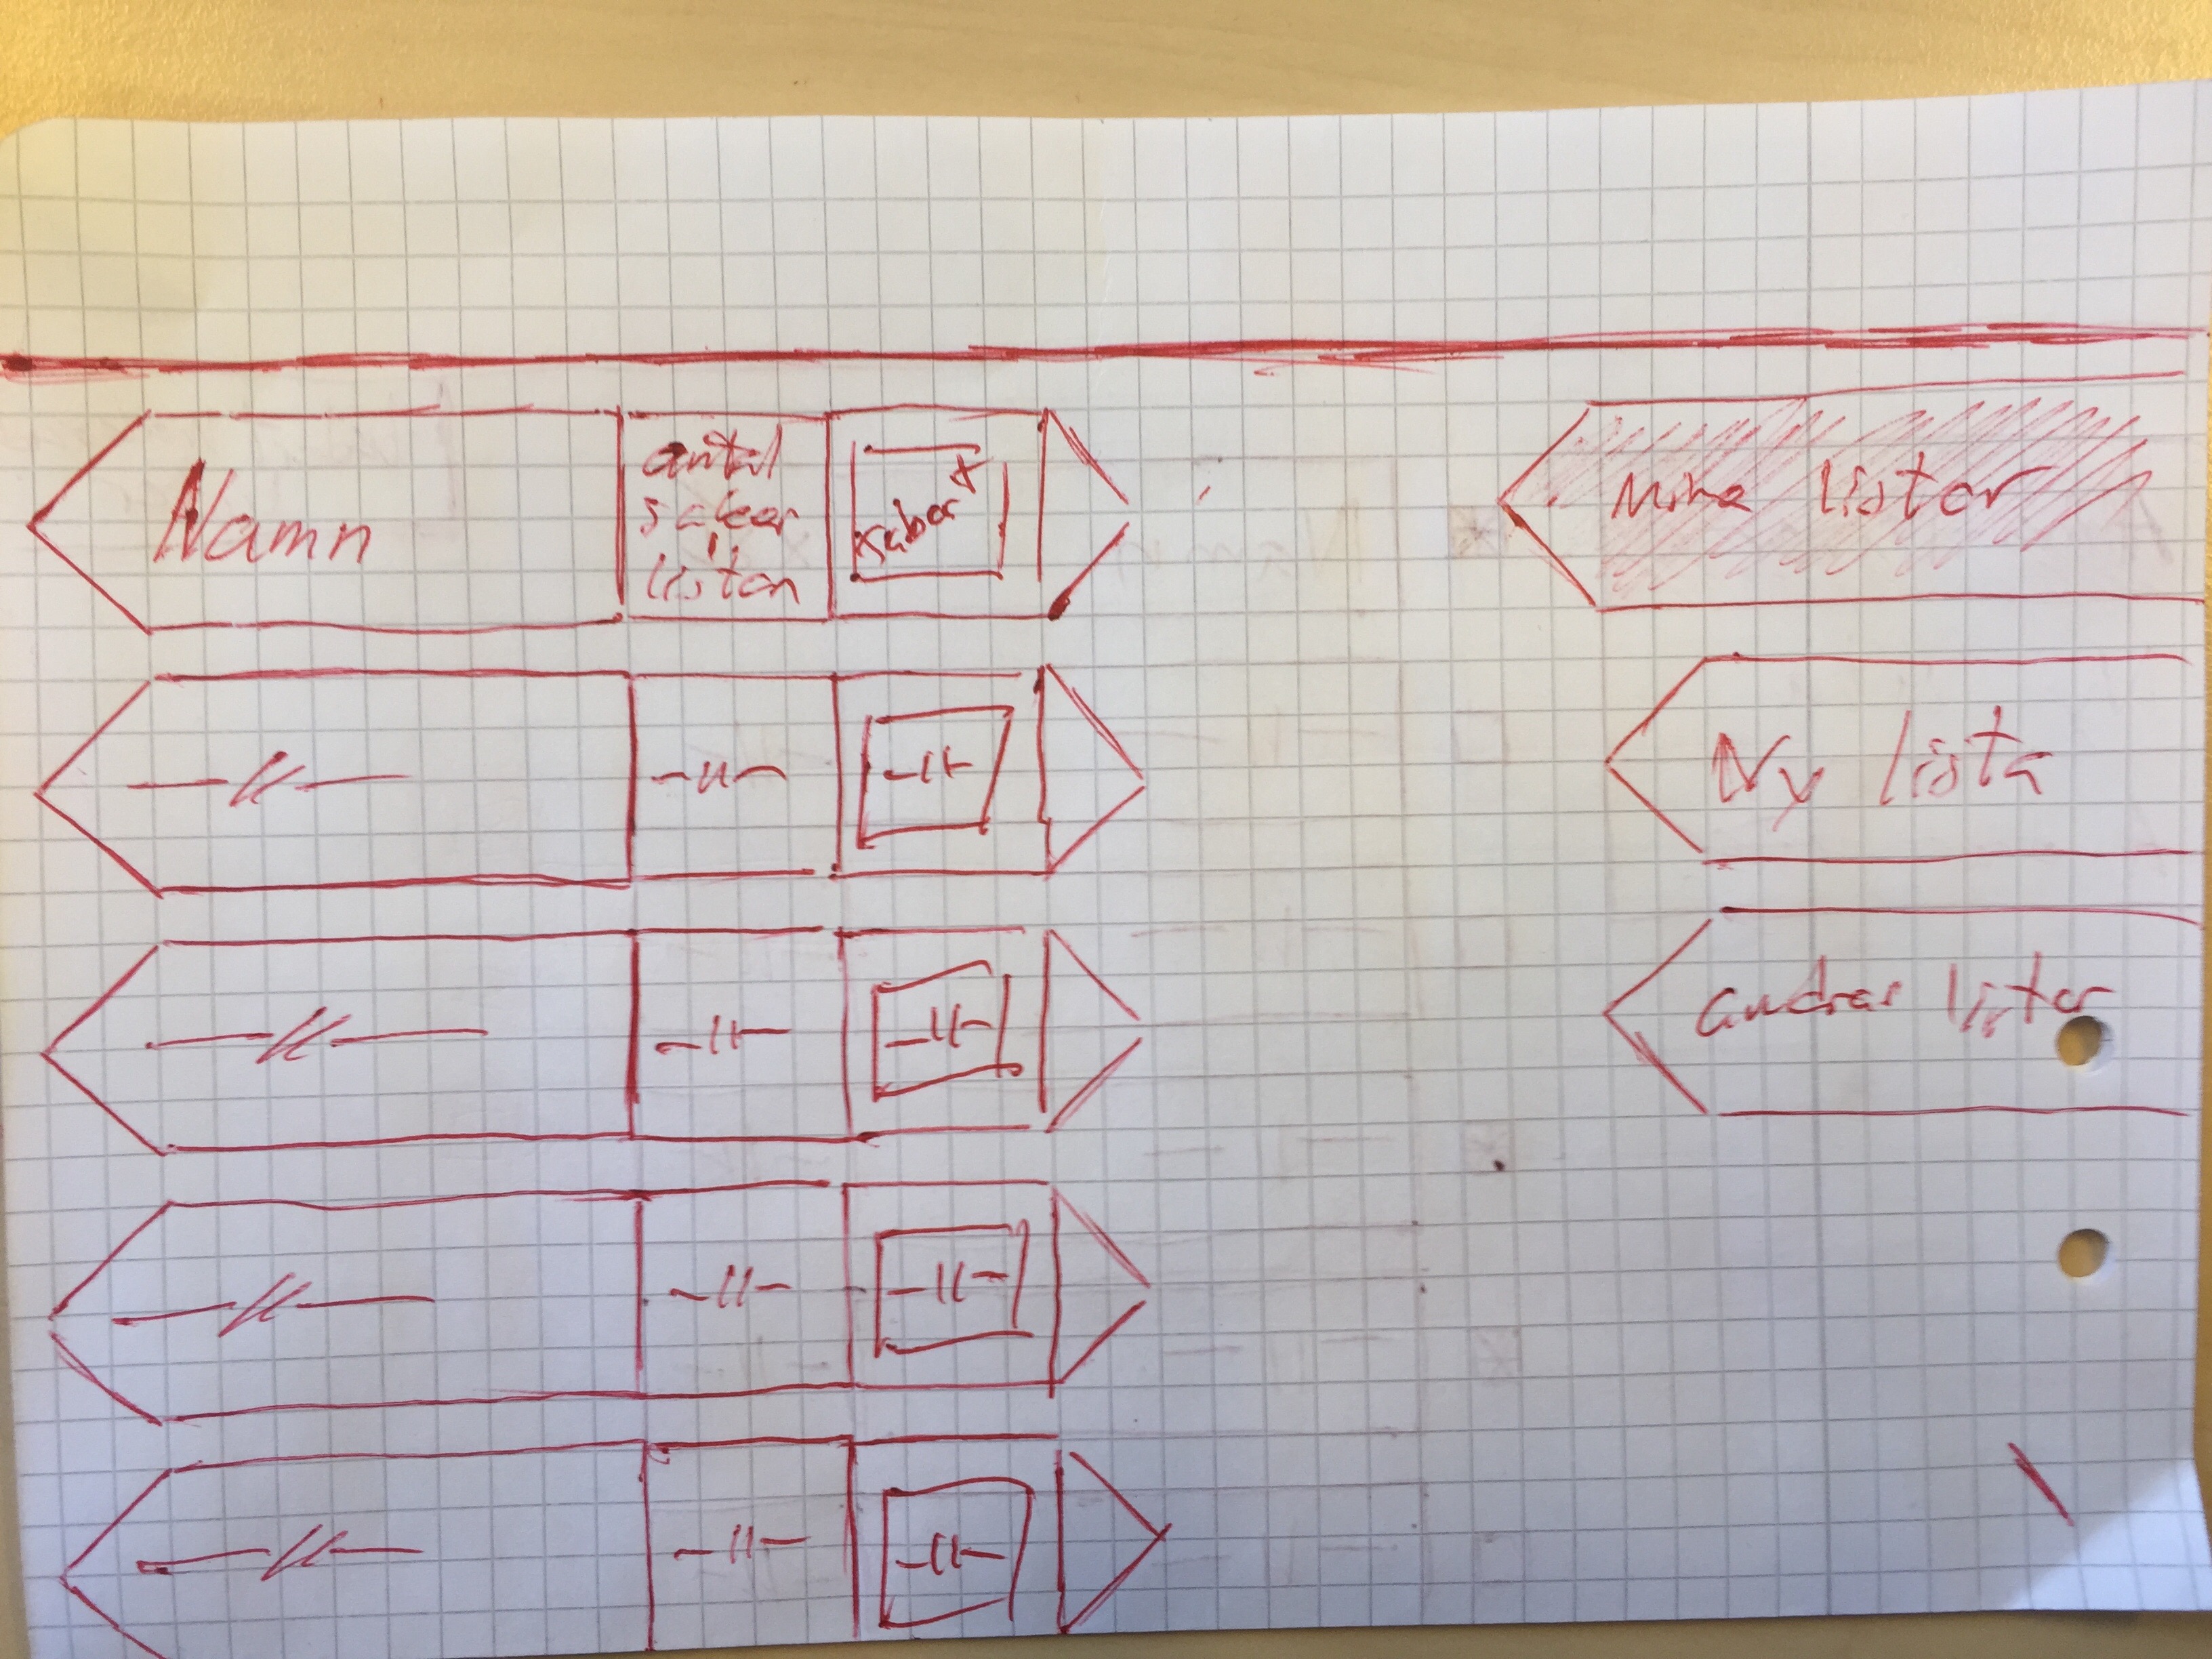 Namn
antal
saker
i
listan
saker
Mina listor
—〃— —〃— —〃—
Ny lista
—〃— —〃— —〃—
andras listor
—〃— —〃— —〃—
—〃— —〃— —〃—